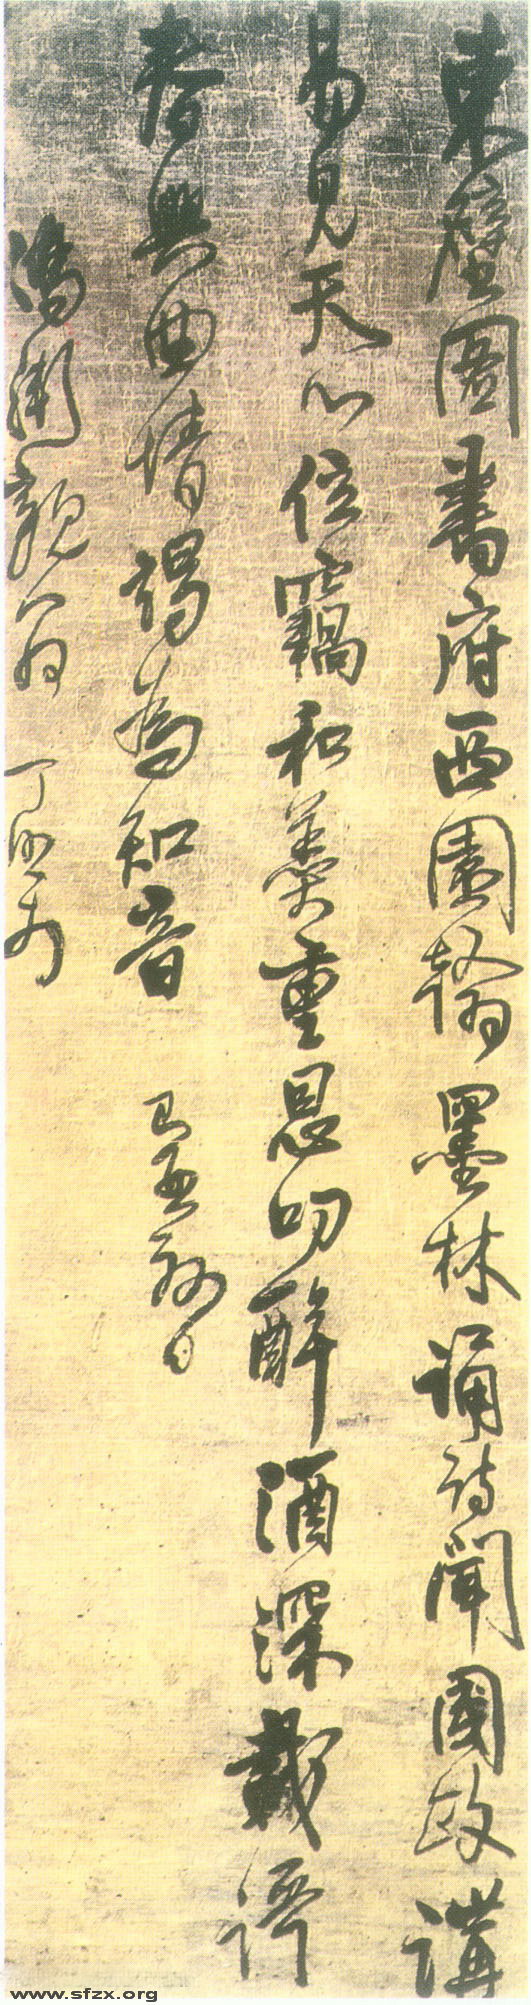 東壁圖書府西園翰墨林誦詩聞國政講
易見天心位竊和羹重恩叨醉酒深載
春興曲情竭為知音 亥秋日
親翁 丁
www.sfzx.org